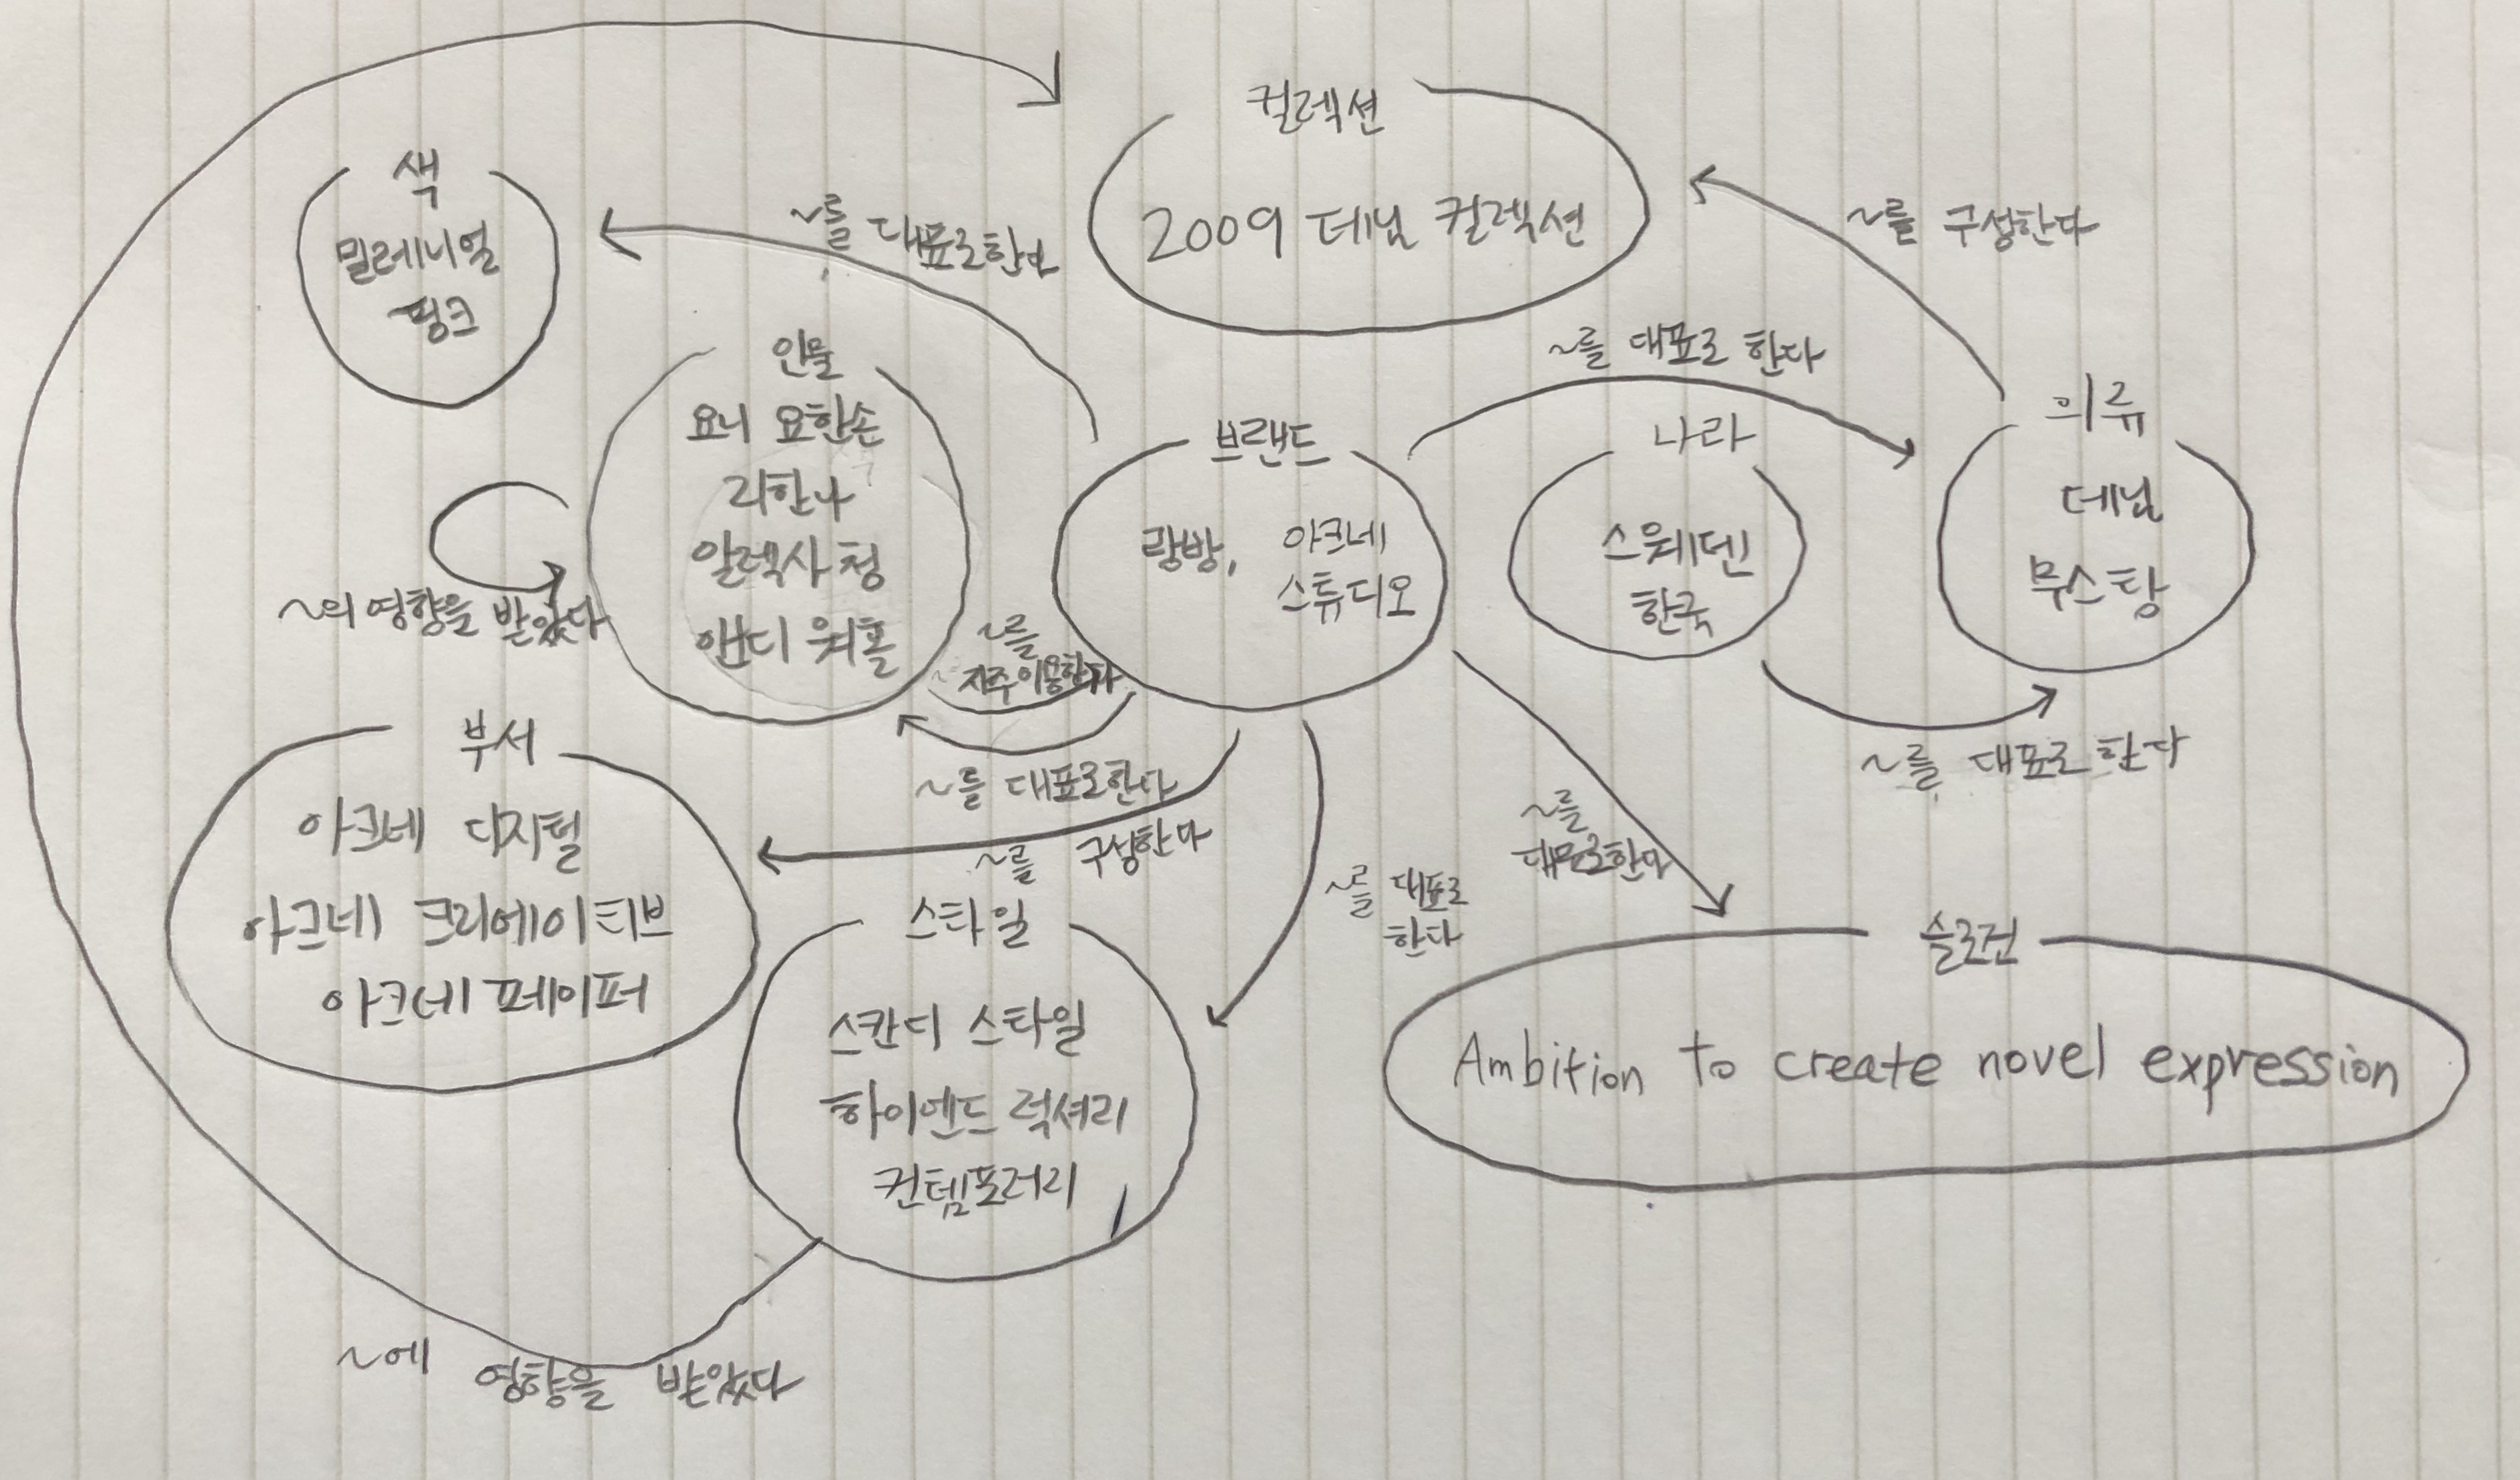 컬렉션
2009 데님 컬렉션
색
밀레니얼
핑크
~를 대표로한다
~를 구성한다
인물
요니 요한손
리한나
알렉사 청
앤디 워홀
~의 영향을 받았다
브랜드
랑방, 아크네
스튜디오
~를 대표로 한다
나라
스웨덴
한국
의류
데님
무스탕
~를
자주이용한다
~를 대표로한다
~를 대표로 한다
부서
아크네 디지털
아크네 크리에이티브
아크네 페이퍼
~를 구성한다
~를 대표로
한다
~를
대표로한다
스타일
스칸디 스타일
하이엔드 럭셔리
컨템포러리
슬로건
Ambition to create novel expression
~에 영향을 받았다